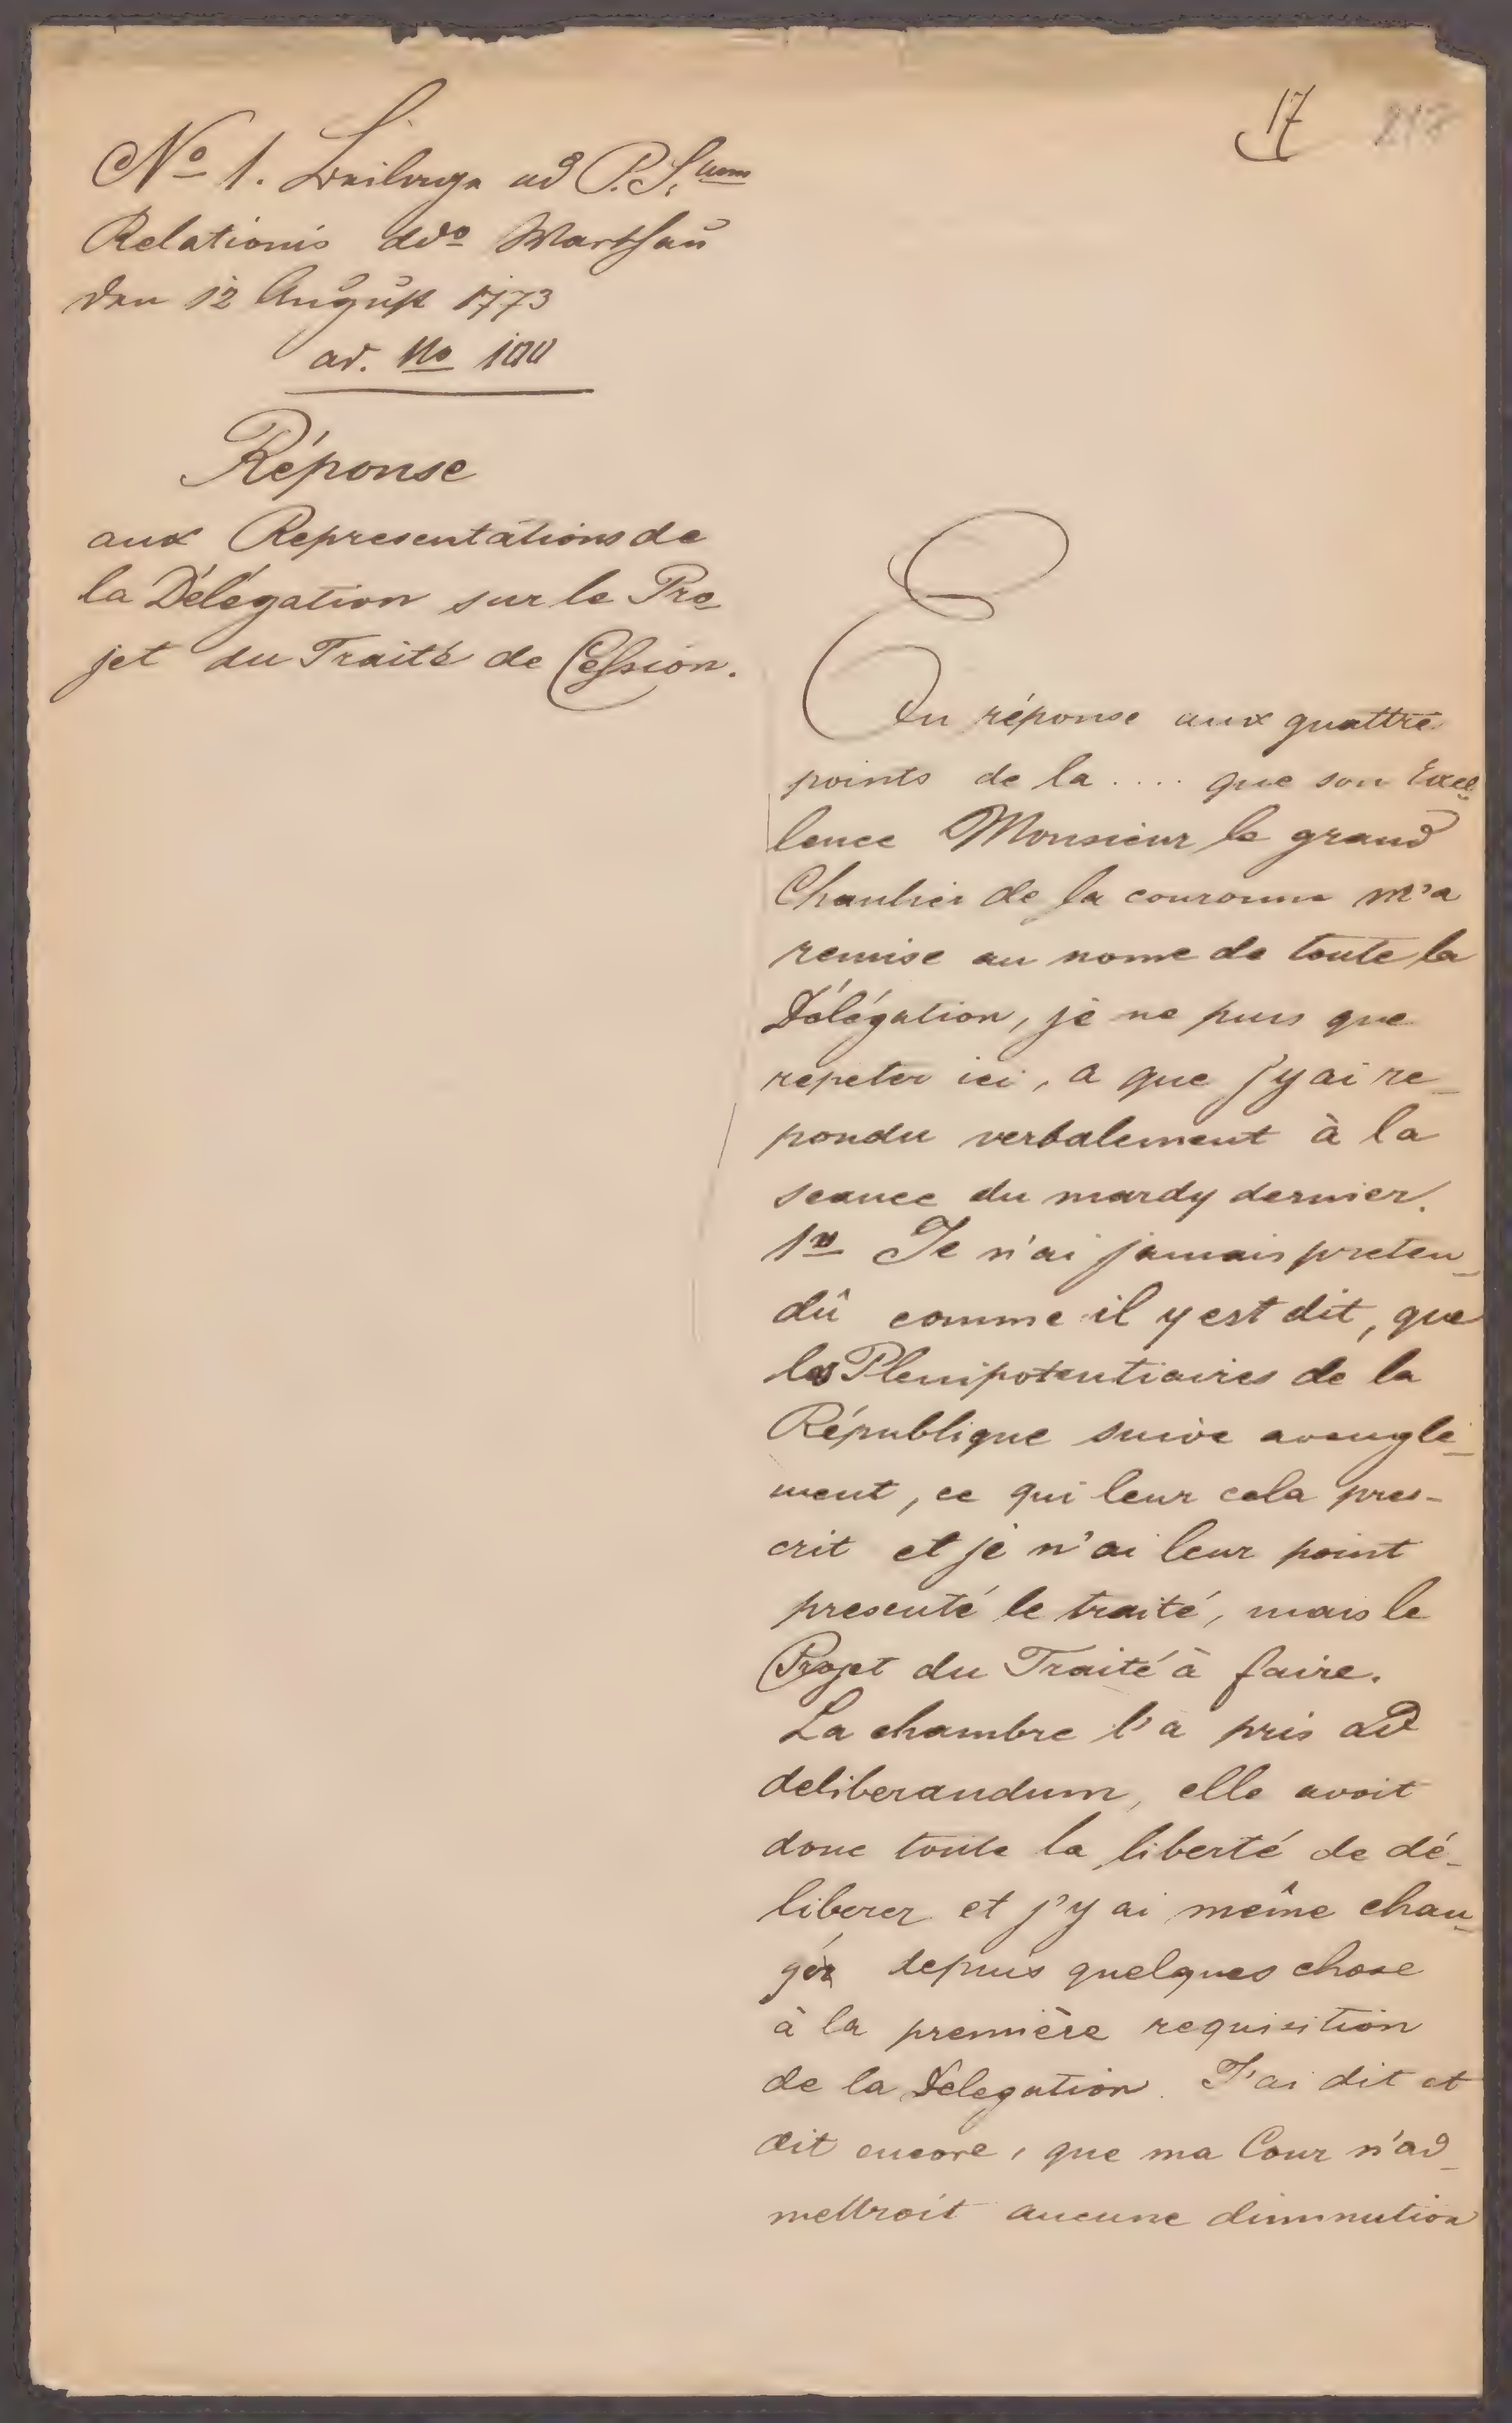 17
No 1. Beilage ad P.S.um
Relationis ddo Warschau
den 12 August 1773
ad. No 100
Réponse
aux Representations de
la Délégation sur le Pro
jet du Traité de Cession.
En réponse aux quattre
points de la .... que son Excel
lence Monsieur le grand
Chanlier de la couronne m'a
remise au nome de toute la
Délégation, je ne puis que
repeter ici, a que j'y ai re_
pondu verbalement à la
seance du mardy dernier.
1o Je n'ai jamais preten_
dû comme il y est dit, que
les Plenipotentiaires de la
République suive aveugle_
ment, ce qui leur cela pres-
crit et je n'ai leur point
presenté le traité, mais le
Projet du Traité à faire.
La chambre l'a pris ad
deliberandum, elle avoit
donc toute la liberté de dé_
liberer et j'y ai même chan_
gér depuis quelques chose
à la première requisition
de la Delegation. J'ai dit et
dit encore, que ma Cour n'ad_
mettroit aucune diminution